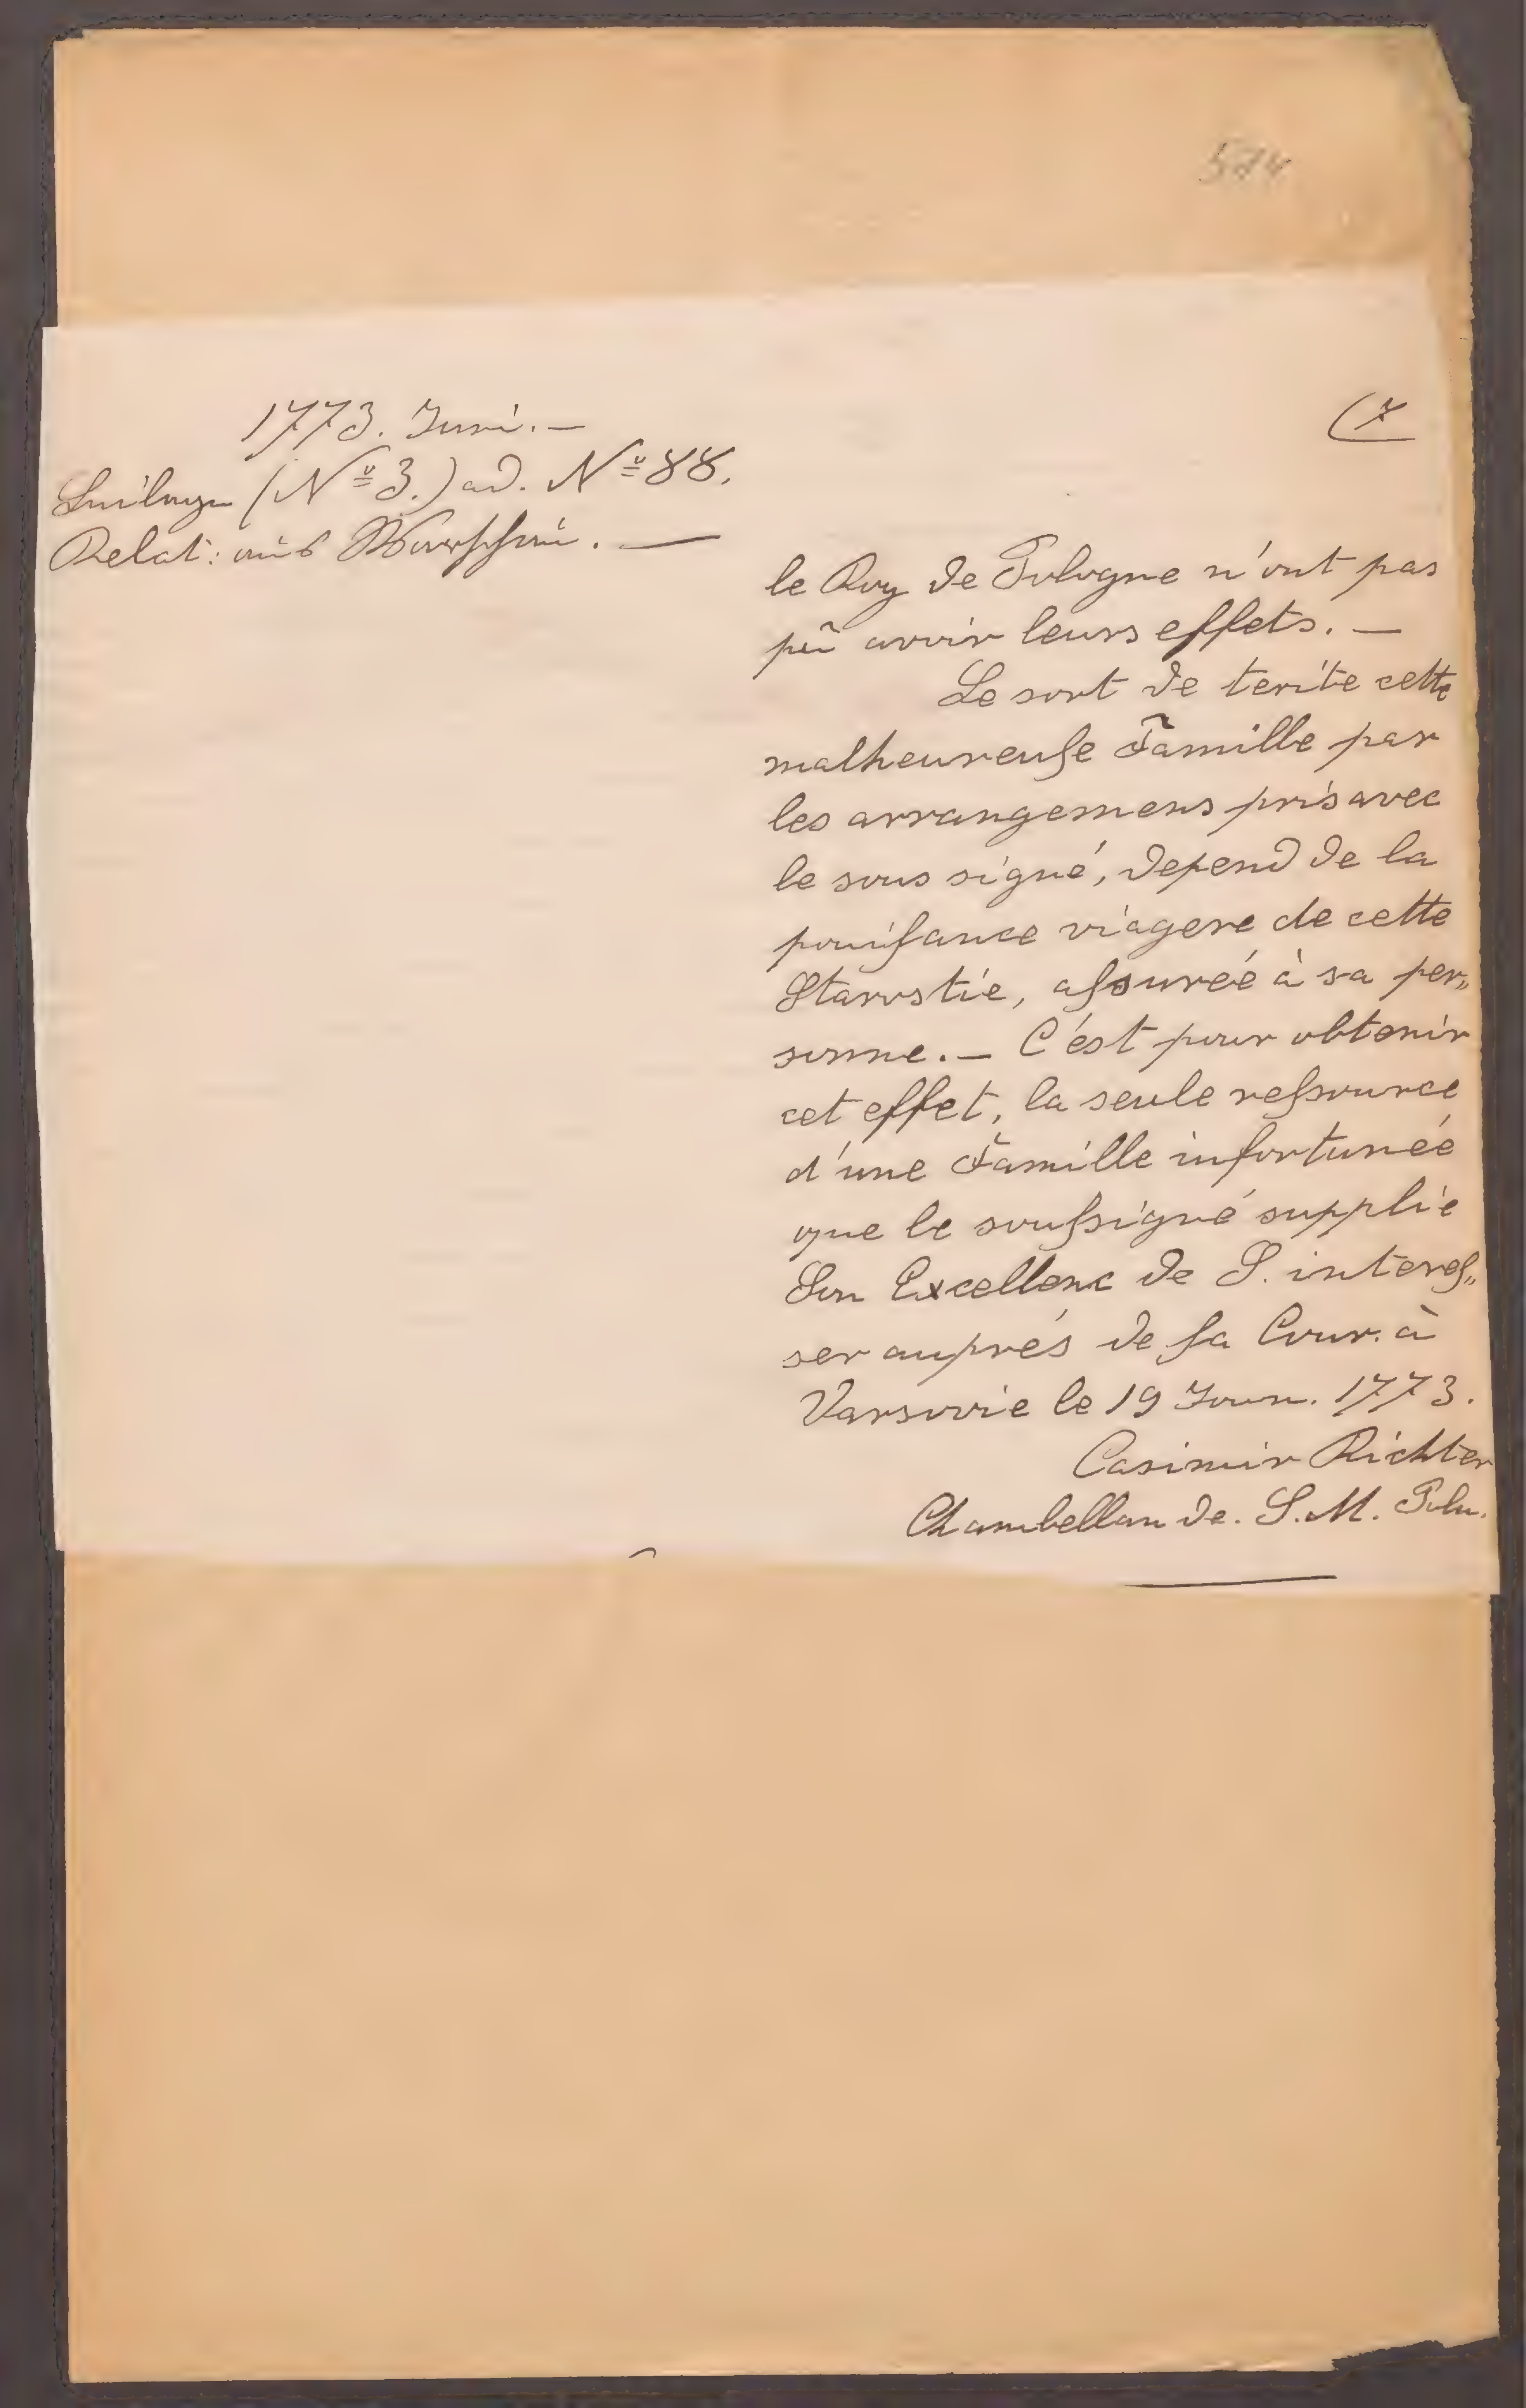 574
1773. Juni. —
Beilage (Nº 3.) ad. Nº 88.
Relat: aus Warschau. —
(7
le Roy de Pologne n'ont pas
pû avoir leurs effets. —
Le sort de toute cette
malheureuse Famille par
les arrangemens pris avec
le sous signé, depend de la
jouissance viagere de cette
Starostie, assureé à sa per„
sonne. — C'est pour obtenir
cet effet, la seule ressource
d'une Famille infortunée
que le soussigné supplie
Son Excellenc de S. interes„
ser auprés de sa Cour. à
Varsovie le 19 Jouin. 1773.
Casimir Richter
Chambellan de. S. M. Polo.